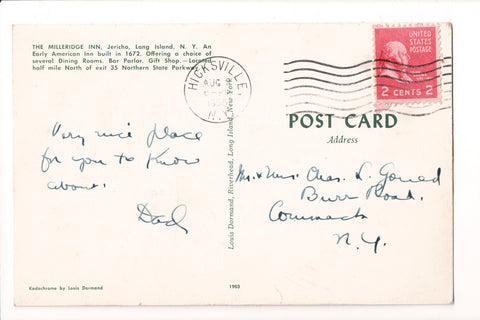 THE MILLERIDGE INN, Jericho, Long Island, N. Y. An
Early American Inn built in 1672. Offering a choice of
several Dining Rooms. Bar Parlor. Gift Shop.—Located
half mile North of exit 35 Northern State Parkway.
HICKSVILLE,
AUG
N.Y.
UNITED
STATES
POSTAGE
2 CENTS 2
Very nice place
for you to know
about.
Dad
Louis Dormand, Riverhead, Long Island, New York
POST CARD
Address
Mr. & Mrs. Chas. L. Gould
Burr Road.
Commack
N.Y.
Kodachrome by Louis Dormand
1903